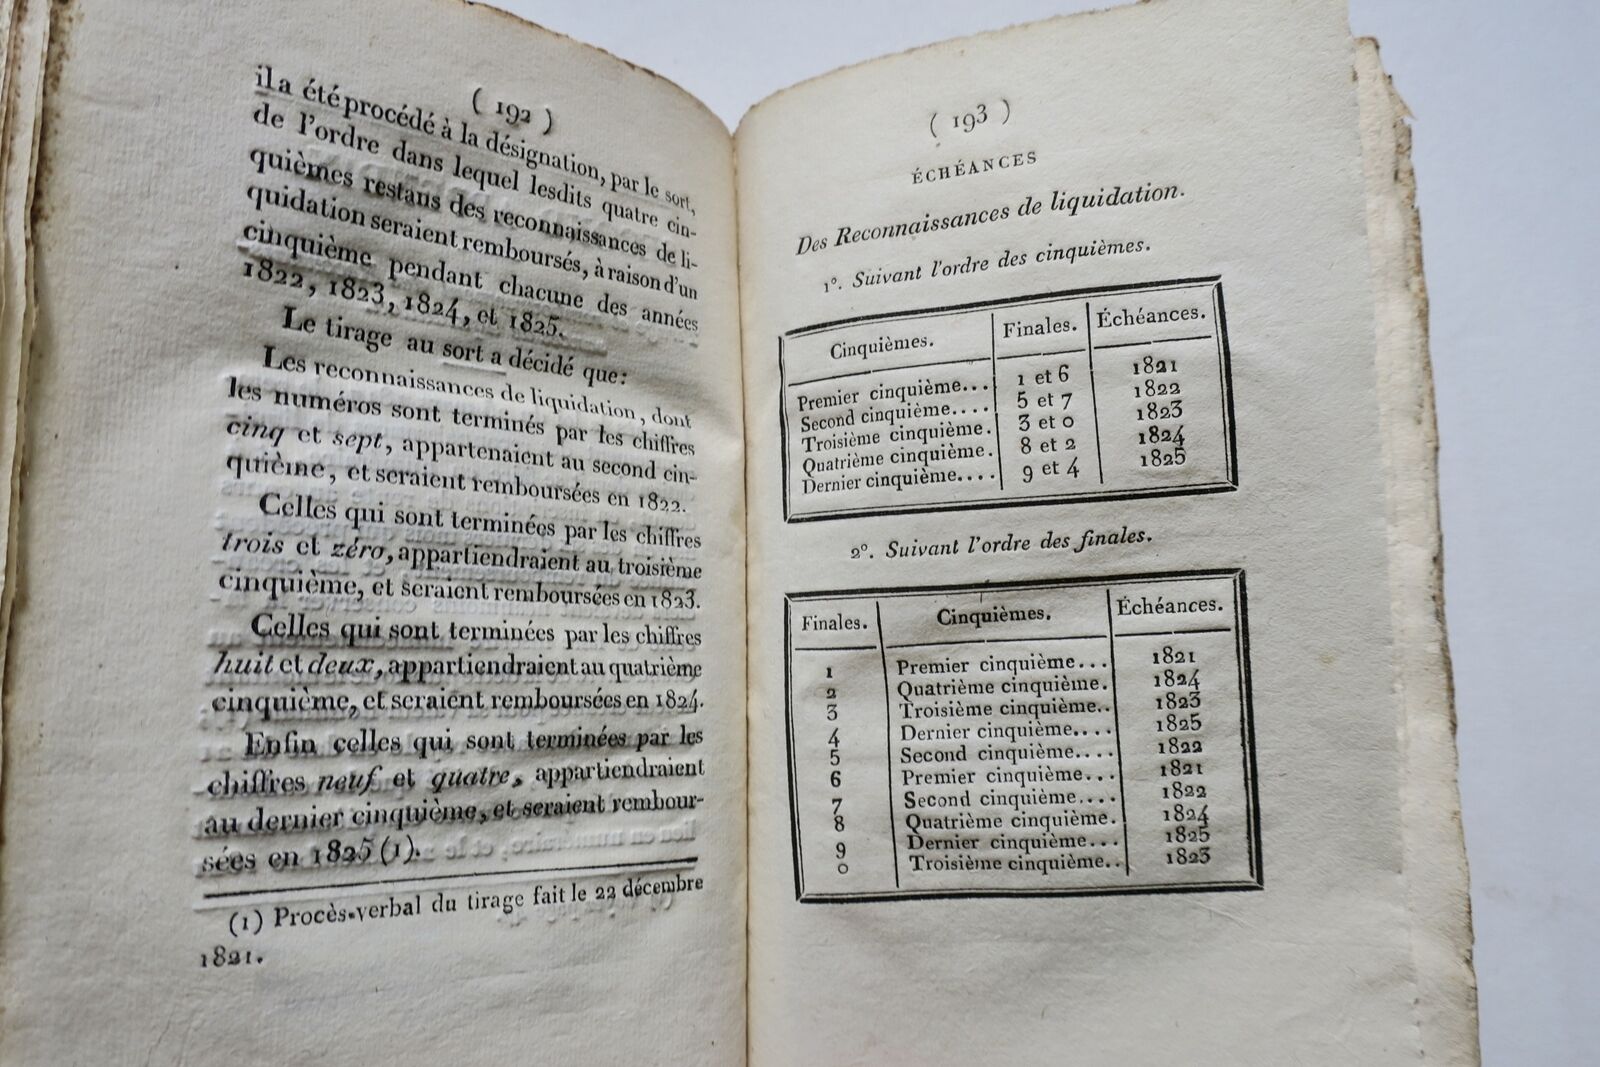 ( 192 )
il a été procédé à la désignation, par le sort,
de l'ordre dans lequel lesdits quatre cin-
quièmes restans des reconnaissances de li-
quidation seraient remboursés, à raison d'un
cinquième pendant chacune des années
1822, 1823, 1824, et 1825.
Le tirage au sort a décidé que :
Les reconnaissances de liquidation, dont
les numéros sont terminés par les chiffres
cinq et sept, appartenaient au second cin-
quième, et seraient remboursées en 1822.
Celles qui sont terminées par les chiffres
trois et zéro, appartiendraient au troisième
cinquième, et seraient remboursées en 1823.
Celles qui sont terminées par les chiffres
huit et deux, appartiendraient au quatrième
cinquième, et seraient remboursées en 1824.
Enfin celles qui sont terminées par les
chiffres neuf et quatre, appartiendraient
au dernier cinquième, et seraient rembour-
sées en 1825 (1).
(1) Procès-verbal du tirage fait le 22 décembre
1821.
( 193 )
ÉCHÉANCES
Des Reconnaissances de liquidation.
1°. Suivant l'ordre des cinquièmes.
Cinquièmes. Finales. Échéances.
Premier cinquième... 1 et 6 1821
Second cinquième.... 5 et 7 1822
Troisième cinquième. 3 et 0 1823
Quatrième cinquième. 8 et 2 1824
Dernier cinquième.... 9 et 4 1825
2°. Suivant l'ordre des finales.
Finales. Cinquièmes. Échéances.
1 Premier cinquième... 1821
2 Quatrième cinquième. 1824
3 Troisième cinquième.. 1823
4 Dernier cinquième.... 1825
5 Second cinquième.... 1822
6 Premier cinquième... 1821
7 Second cinquième.... 1822
8 Quatrième cinquième. 1824
9 Dernier cinquième... 1825
0 Troisième cinquième.. 1823